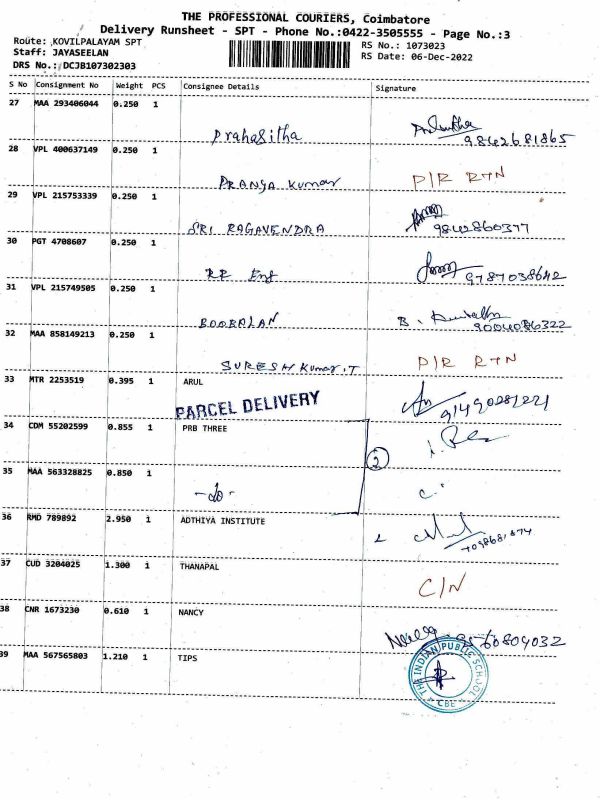 THE PROFESSIONAL COURIERS, Coimbatore
Delivery Runsheet - SPT - Phone No.:0422-3505555 - Page No.:3
Route: KOVILPALAYAM SPT RS No.: 1073023
Staff: JAYASEELAN RS Date: 06-Dec-2022
DRS No.: DCJB107302303
S No Consignment No Weight PCS Consignee Details Signature
27 MAA 293406044 0.250 1
Prahasitha 9842681865
28 VPL 400637149 0.250 1
PRANYA Kumar P/R RTN
29 VPL 215753339 0.250 1
SRI RAGAVENDRA 9842860377
30 PGT 4708607 0.250 1
RR Eng 9787038642
31 VPL 215749505 0.250 1
BOOBALAN B. 9004086322
32 MAA 858149213 0.250 1
SURESH Kumar.T P/R RTN
33 MTR 2253519 0.395 1 ARUL
PARCEL DELIVERY
34 CDM 55202599 0.855 1 PRB THREE
2
35 MAA 563328825 0.850 1
-do-
36 RMD 789892 2.950 1 ADTHIYA INSTITUTE
37 CUD 3204025 1.300 1 THANAPAL
C/N
38 CNR 1673230 0.610 1 NANCY
9560804032
39 MAA 567565803 1.210 1 TIPS
THE INDIAN PUBLIC SCHOOL
CBE